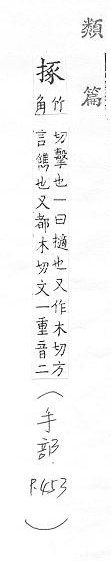 類篇
㧻
竹角
切擊也一曰擿也又作木切方
言鐫也又都木切文一重音二
（手部．P.453）